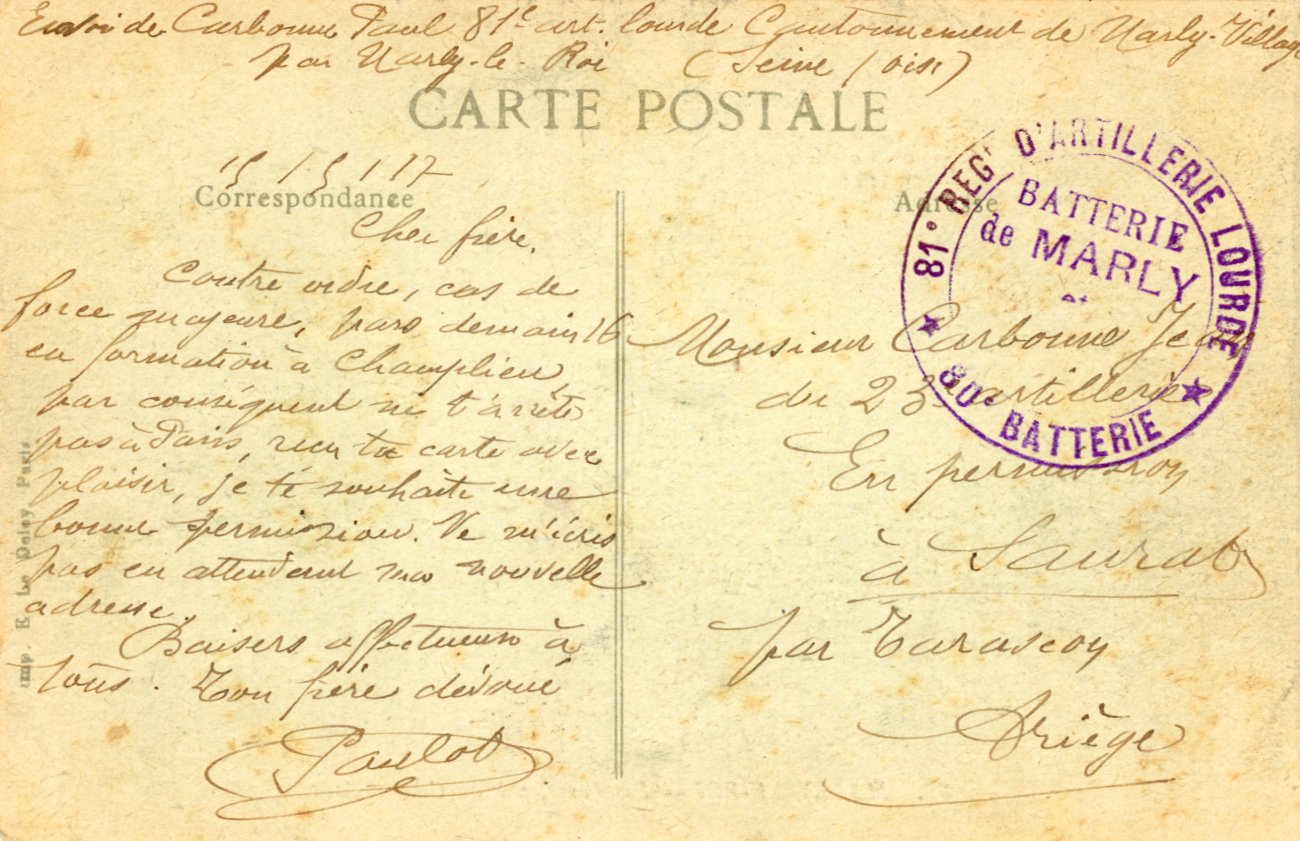 Envoi de Carbonne Paul 81e art. lourde Cantonnement de Marly-Village
par Marly-le-Roi (Seine / oise)
CARTE POSTALE
15/5/17
Correspondance
Cher frère,
Contre ordre, cas de
force majeure, pars demain 16
en formation à Champlieu,
par conséquent ne t'arrête
pas à Paris, reçu ta carte avec
plaisir, je te souhaite une
bonne permission. Ne m'écris
pas en attendant ma nouvelle
adresse.
Baisers affectueux à
tous. Ton frère dévoué
Paulot
Imp. E. Le Deley Paris
Adresse
81e REGt D'ARTILLERIE LOURDE
BATTERIE
de MARLY
80e BATTERIE
Monsieur Carbonne Jean
du 23e artillerie
En permission
à Saurat
par Tarascon
Ariège